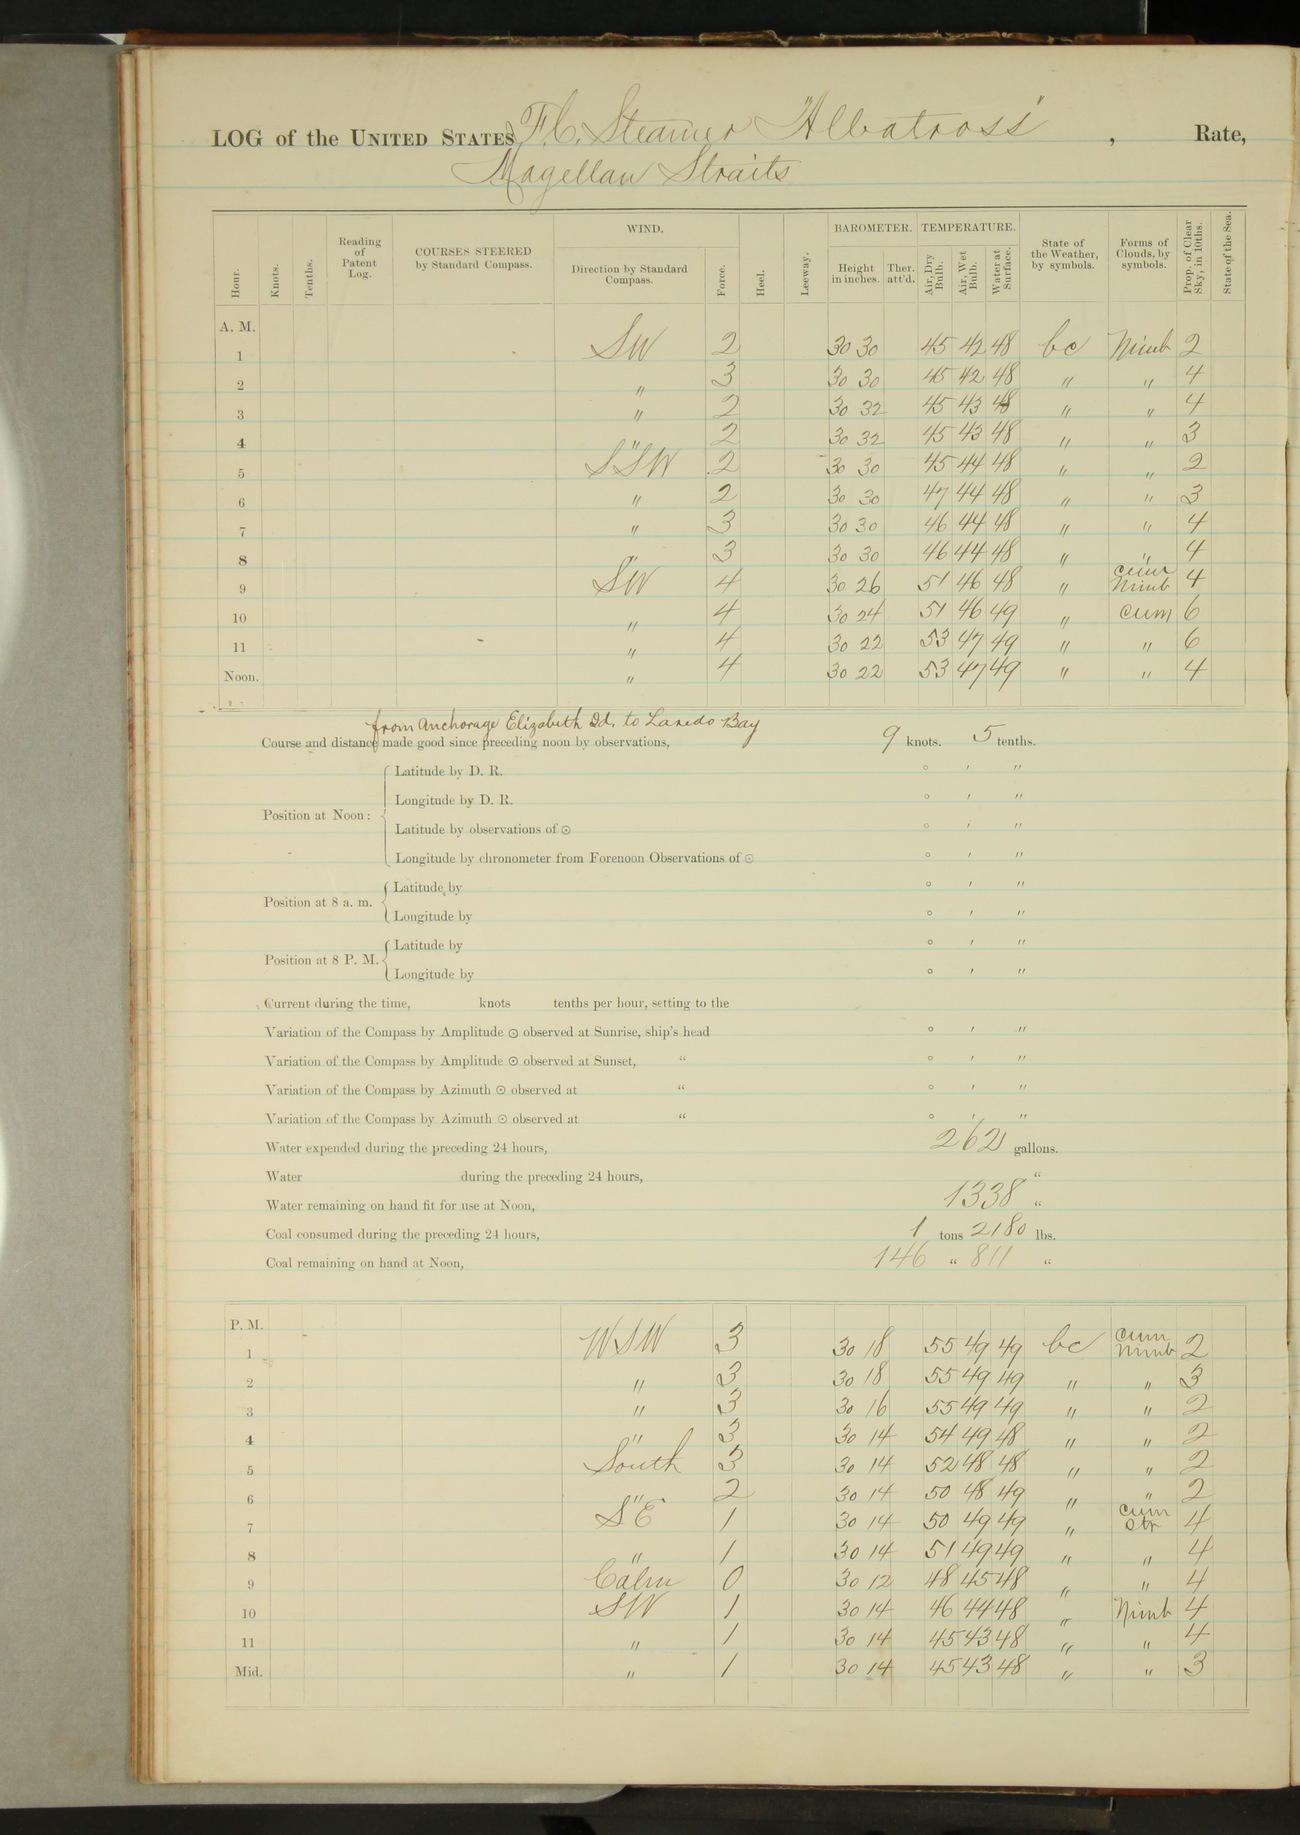 LOG of the UNITED STATES F.C. Steamer "Albatross", Rate,
Magellan Straits
Hour. Knots. Tenths. Reading of Patent Log. COURSES STEERED by Standard Compass. WIND. Direction by Standard Compass. Force. Heel. Leeway. BAROMETER. Height in inches. Ther. att'd. TEMPERATURE. Air, Dry Bulb. Air, Wet Bulb. Water at Surface. State of the Weather, by symbols. Forms of Clouds, by symbols. Prop. of Clear Sky, in 10ths. State of the Sea.
A. M.
1 SW 2 30 30 45 42 48 bc Nimb 2
2 " 3 30 30 45 42 48 " " 4
3 " 2 30 32 45 43 48 " " 4
4 " 2 30 32 45 43 48 " " 3
5 SSW 2 30 30 45 44 48 " " 2
6 " 2 30 30 47 44 48 " " 3
7 " 3 30 30 46 44 48 " " 4
8 " 3 30 30 46 44 48 " " 4
9 SW 4 30 26 51 46 48 " Cum Nimb 4
10 " 4 30 24 51 46 49 " Cum 6
11 " 4 30 22 53 47 49 " " 6
Noon. " 4 30 22 53 47 49 " " 4
from Anchorage Elizabeth Id. to Laredo Bay
Course and distance made good since preceding noon by observations, 9 knots. 5 tenths.
Position at Noon:
Latitude by D. R. ° ′ ″
Longitude by D. R. ° ′ ″
Latitude by observations of ☉ ° ′ ″
Longitude by chronometer from Forenoon Observations of ☉ ° ′ ″
Position at 8 a. m.
Latitude by ° ′ ″
Longitude by ° ′ ″
Position at 8 P. M.
Latitude by ° ′ ″
Longitude by ° ′ ″
Current during the time, knots tenths per hour, setting to the
Variation of the Compass by Amplitude ☉ observed at Sunrise, ship's head ° ′ ″
Variation of the Compass by Amplitude ☉ observed at Sunset, " ° ′ ″
Variation of the Compass by Azimuth ☉ observed at " ° ′ ″
Variation of the Compass by Azimuth ☉ observed at " ° ′ ″
Water expended during the preceding 24 hours, 262 gallons.
Water during the preceding 24 hours, "
Water remaining on hand fit for use at Noon, 1338 "
Coal consumed during the preceding 24 hours, 1 tons 2180 lbs.
Coal remaining on hand at Noon, 146 " 811 "
P. M.
1 WSW 3 30 18 55 49 49 bc Cum Nimb 2
2 " 3 30 18 55 49 49 " " 3
3 " 3 30 16 55 49 49 " " 2
4 " 3 30 14 54 49 48 " " 2
5 South 3 30 14 52 48 48 " " 2
6 " 2 30 14 50 48 49 " " 2
7 SE 1 30 14 50 49 49 " Cum Str 4
8 " 1 30 14 51 49 49 " " 4
9 Calm 0 30 12 48 45 48 " " 4
10 SW 1 30 14 46 44 48 " Nimb 4
11 " 1 30 14 45 43 48 " " 4
Mid. " 1 30 14 45 43 48 " " 3